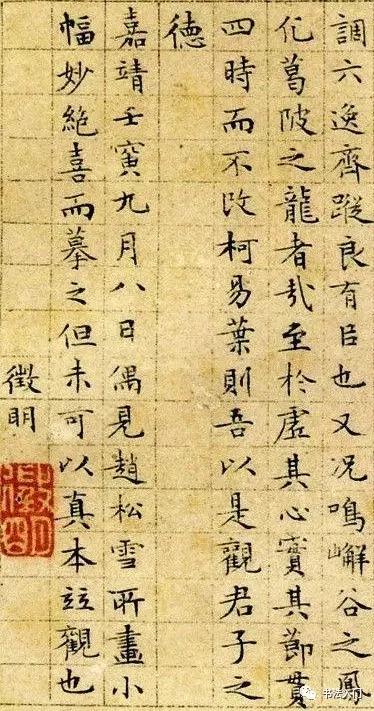 調六逸齊蹤良有㠯也又况鳴嶰谷之鳳
化葛陂之龍者哉至於虛其心實其節貫
四時而不改柯易葉則吾以是觀君子之
德
嘉靖壬寅九月八日偶見趙松雪所畫小
幅妙絕喜而摹之但未可以真本竝觀也
徵明
徵明
书法入门